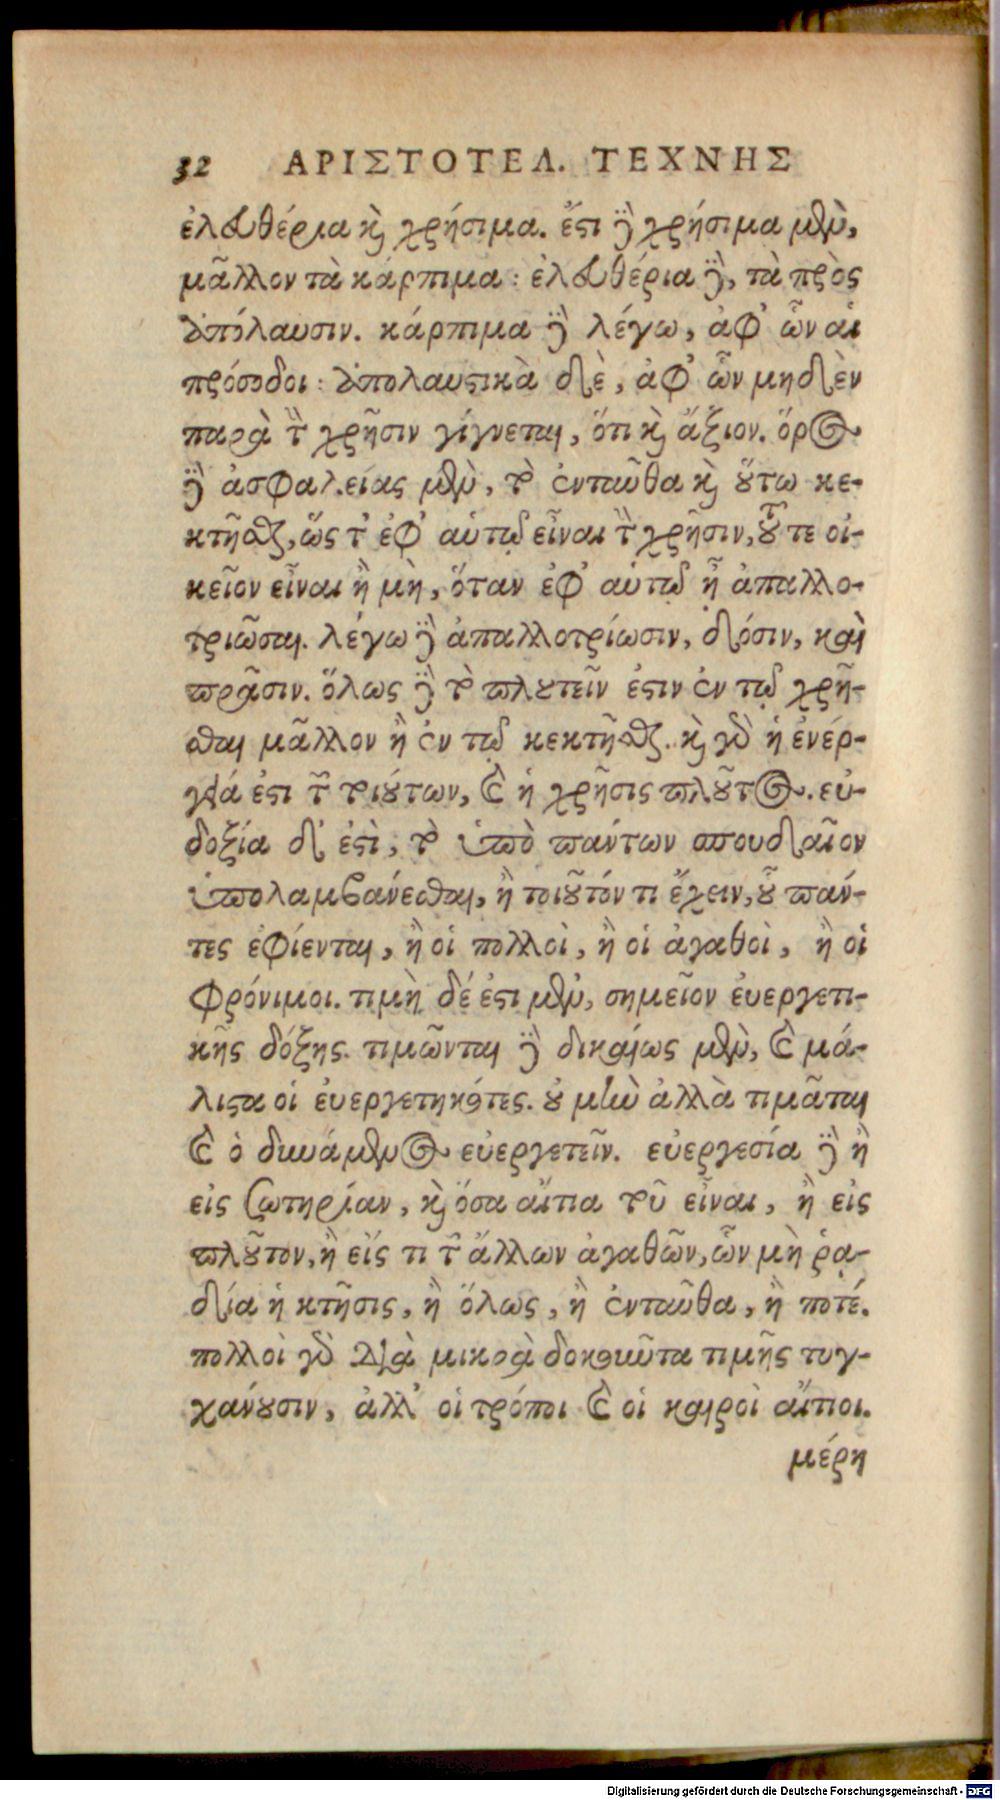 32 ΑΡΙΣΤΟΤΕΛ. ΤΕΧΝΗΣ
ἐλευθέρια καὶ χρήσιμα. ἔστι δὲ χρήσιμα μὲν,
μᾶλλον τὰ κάρπιμα: ἐλευθέρια δὲ, τὰ πρὸς
ἀπόλαυσιν. κάρπιμα δὲ λέγω, ἀφ' ὧν αἱ
πρόσοδοι: ἀπολαυστικὰ δὲ, ἀφ' ὧν μηδὲν
παρὰ τὴν χρῆσιν γίγνεται, ὅτι καὶ ἄξιον. ὅρος
δὲ ἀσφαλείας μὲν, τὸ ἐνταῦθα καὶ οὕτω κε-
κτῆσθαι, ὥς τ' ἐφ' αὑτῷ εἶναι τὴν χρῆσιν, τοῦ τε οἰ-
κεῖον εἶναι ἢ μὴ, ὅταν ἐφ' αὑτῷ ᾖ ἀπαλλο-
τριῶσαι. λέγω δὲ ἀπαλλοτρίωσιν, δόσιν, καὶ
πρᾶσιν. ὅλως δὲ τὸ πλουτεῖν ἐστιν ἐν τῷ χρῆ-
σθαι μᾶλλον ἢ ἐν τῷ κεκτῆσθαι. καὶ γὰρ ἡ ἐνέρ-
γειά ἐστι τῶν τοιούτων, καὶ ἡ χρῆσις πλοῦτος. εὐ-
δοξία δ' ἐστὶ, τὸ ὑπὸ πάντων σπουδαῖον
ὑπολαμβάνεσθαι, ἢ τοιοῦτόν τι ἔχειν, οὗ πάν-
τες ἐφίενται, ἢ οἱ πολλοὶ, ἢ οἱ ἀγαθοὶ, ἢ οἱ
φρόνιμοι. τιμὴ δέ ἐστι μὲν, σημεῖον ἐυεργετι-
κῆς δόξης. τιμῶνται δὲ δικαίως μὲν, καὶ μά-
λιστα οἱ ἐυεργετηκότες. οὐ μὴν ἀλλὰ τιμᾶται
καὶ ὁ δυνάμενος εὐεργετεῖν. εὐεργεσία δὲ ἢ
εἰς σωτηρίαν, καὶ ὅσα αἴτια τοῦ εἶναι, ἢ εἰς
πλοῦτον, ἢ εἴς τι τῶν ἄλλων ἀγαθῶν, ὧν μὴ ῥᾳ-
δία ἡ κτῆσις, ἢ ὅλως, ἢ ἐνταῦθα, ἢ ποτέ.
πολλοὶ γὰρ διὰ μικρὰ δοκοῦντα τιμῆς τυγ-
χάνουσιν, ἀλλ' οἱ τρόποι καὶ οἱ καιροὶ αἴτιοι.
μέρη
Digitalisierung gefördert durch die Deutsche Forschungsgemeinschaft - DFG